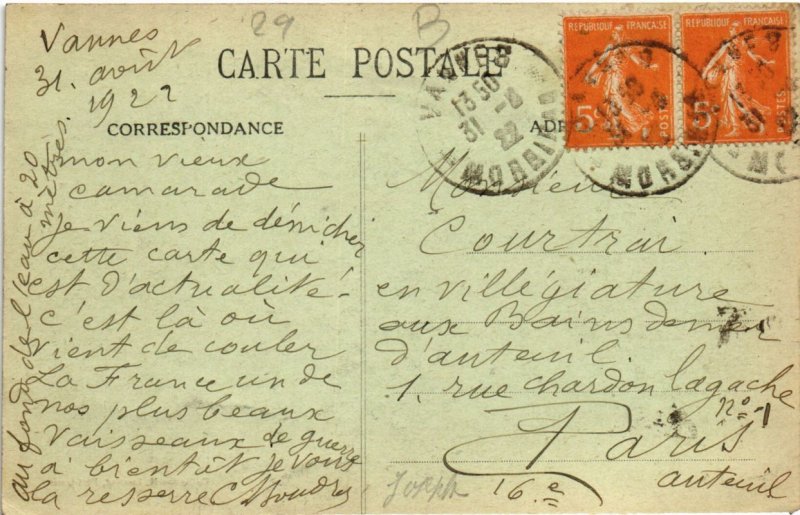 29
B
CARTE POSTALE
Vannes
31. août
1922
CORRESPONDANCE
mon vieux
camarade
Je viens de dénicher
cette carte qui
est d'actualité.
c'est là où
vient de couler
La France un de
nos plus beaux
Vaisseaux de guerre
à bientôt je vous
la resserre
au fond de l'eau à 20
mètres.
REPUBLIQUE FRANÇAISE
5c
POSTES
REPUBLIQUE FRANÇAISE
5c
POSTES
VANNES
13 50
31 -8
22
MORBIHAN
Monsieur
Courtrai
en villégiature
aux Bains de mer
d'auteuil.
1, rue chardon lagache
no-1
Paris
16.e
auteuil
Joseph